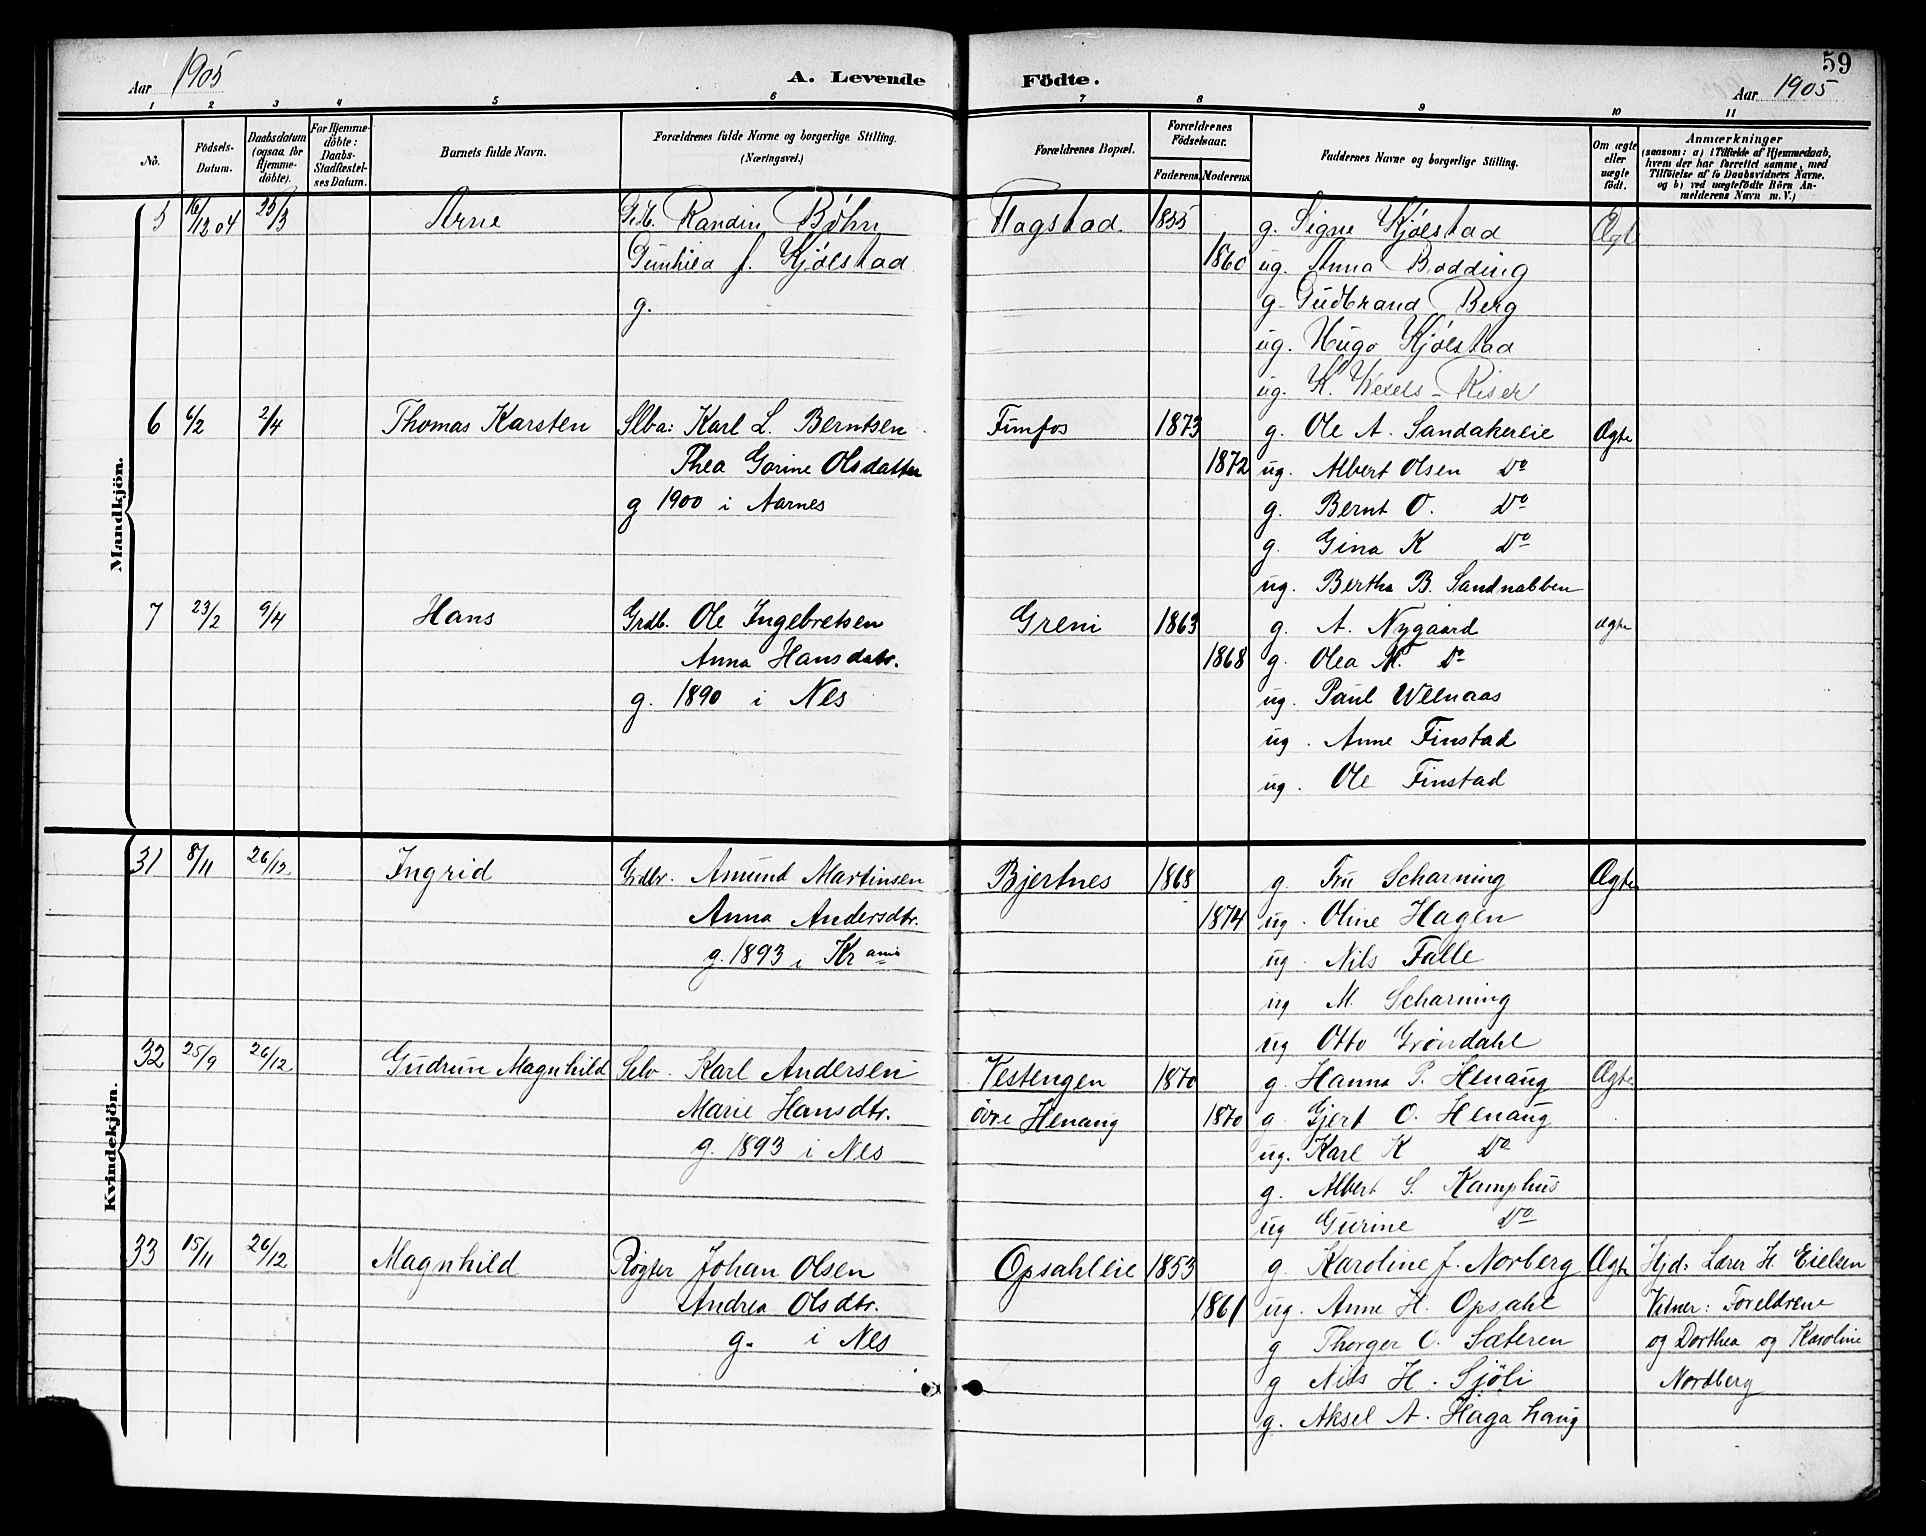 59
Aar 1905 A. Levende Födte. Aar 1905
1 2 3 4 5 6 7 8 9 10 11
No. Födsels-Datum. Daabsdatum (ogsaa for Hjemme-döbte). For Hjemme-döbte: Daabs-Stadfæstel-ses Datum. Barnets fulde Navn. Forældrenes fulde Navne og borgerlige Stilling. (Næringsvei.) Forældrenes Bopæl. Forældrenes Födselsaar. Faderens Moderens Faddernes Navne og borgerlige Stilling. Om ægte eller uægte født. Anmærkninger (saasom: a) i Tilfælde af Hjemmedaab, hvem der har forrettet samme, med Tilföielse af to Daabsvidners Navne, og b) ved uægtefödte Börn An-melderens Navn m. V.)
Mandkjön.
5 16/12 04 25/3 Arne Randin Bøhn Flagstad. 1855 g. Signe Kjølstad Ægte
Gunhild J. Kjølstad 1860 ug. Anna Bodding
g. g. Gudbrand Berg
ug. Hugo Kjølstad
ug. K. Wexels-Riser
6 6/2 2/4 Thomas Karsten Slba: Karl L. Berntsen Funfos 1873 g. Ole A. Sandakereie Ægte
Thea Gorine Olsdatter 1872 ug. Albert Olsen Do
g 1900 i Aarnes g. Bernt O. Do
g. Gina K Do
ug. Bertha B. Sandnabben
7 23/2 9/4 Hans Grdb. Ole Ingebretsen Greni 1863 g. A. Nygaard ægte
Anna Hansdatr. 1868 g. Olea M. Do
g. 1890 i Nes ug. Paul Welnaas
ug. Anne Finstad
ug. Ole Finstad
Kvindekjön.
31 8/11 26/12 Ingrid Grdbr. Amund Martinsen Bjertnes 1868 g Fru Scharning Ægte
Anna Andersdtr. 1874 ug. Oline Hagen
g. 1893 i Kr ania ug. Nils Falle
ug M. Scharning
ug Otto Grøndahl
32 25/9 26/12 Gudrun Magnhild Selv. Karl Andersen Vestengen 1870 g Hanna P. Henaug Ægte
Marie Hansdtr. övre Henaug 1870 g Gjert O. Henaug
g. 1893 i Nes ug. Karl K Do
g. Albert S. Kamphus
ug Gurine Do
33 15/11 26/12 Magnhild Røgter Johan Olsen Opsahleie 1853 g. Karoline J. Norberg Ægte Hjd: Lærer H. Eielsen
Andrea Olsdtr. 1861 ug. Anne H. Opsahl Vidner: Foreldrene
g. i Nes g Thorger O. Sæteren og Dorthea og Karoline
g Nils H. Sjöli Nordberg
g. Aksel A. Hagahaug